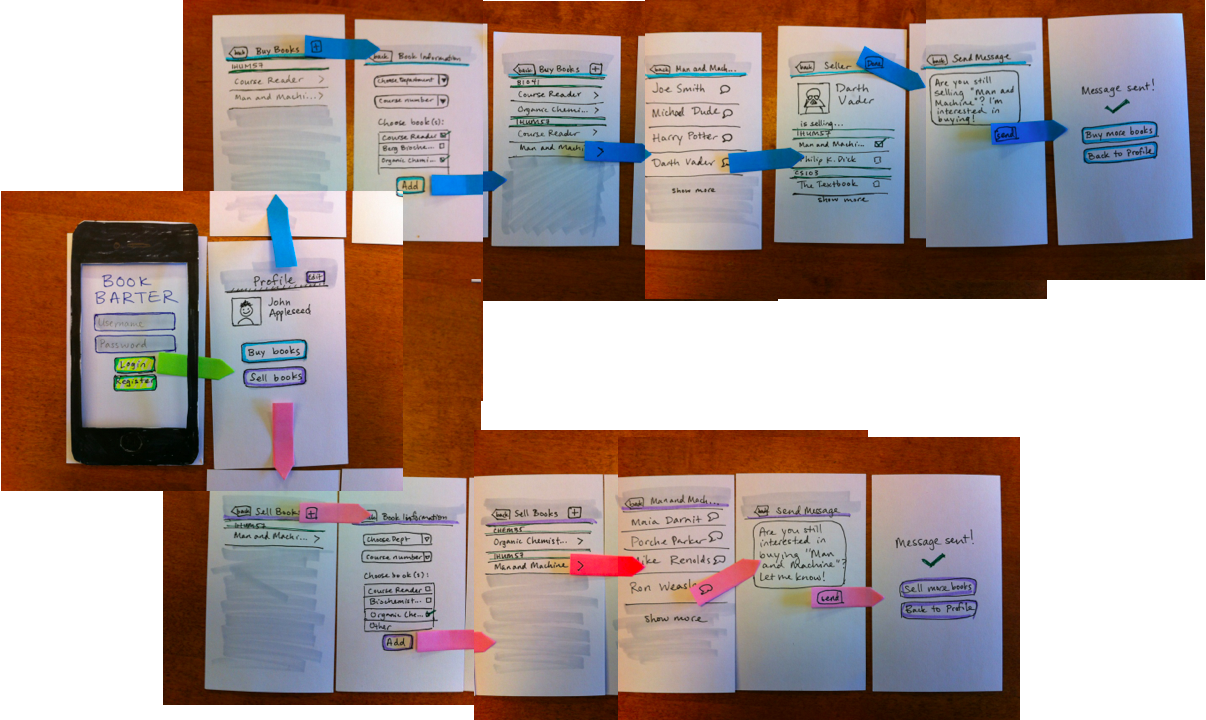 back Buy Books +
IHUM57
Course Reader >
Man and Machi... >
back Book Information
Choose Department
Course number
Choose book(s):
Course Reader
Berg Bioche...
Organic Chemi...
Add
back Buy Books +
BIO41
Course Reader >
Organic Chemi... >
IHUM57
Course Reader >
Man and Machi... >
back Man and Mach...
Joe Smith
Michael Dude
Harry Potter
Darth Vader
Show more
back Seller Done
Darth
Vader
is selling...
IHUM57
Man and Machi...
Philip K. Dick
CS103
The Textbook
show more
back Send Message
Are you still
selling "Man
and
Machine"? I'm
interested in
buying!
send
Message sent!
Buy more books
Back to Profile
BOOK
BARTER
Username
Password
Login
Register
Profile edit
John
Appleseed
Buy books
Sell books
back Sell Books +
IHUM57
Man and Machi... >
back Book Information
Choose Dept
Course number
Choose book(s):
Course Reader
Biochemist...
Organic Che...
Other
Add
back Sell Books +
CHEM35
Organic Chemist... >
IHUM57
Man and Machine >
back Man and Mach...
Maia Darnit
Porche Parker
Mike Renolds
Ron Weasl
show more
back Send Message
Are you still
interested in
buying "Man
and Machine"?
Let me know!
send
Message sent!
Sell more books
Back to Profile